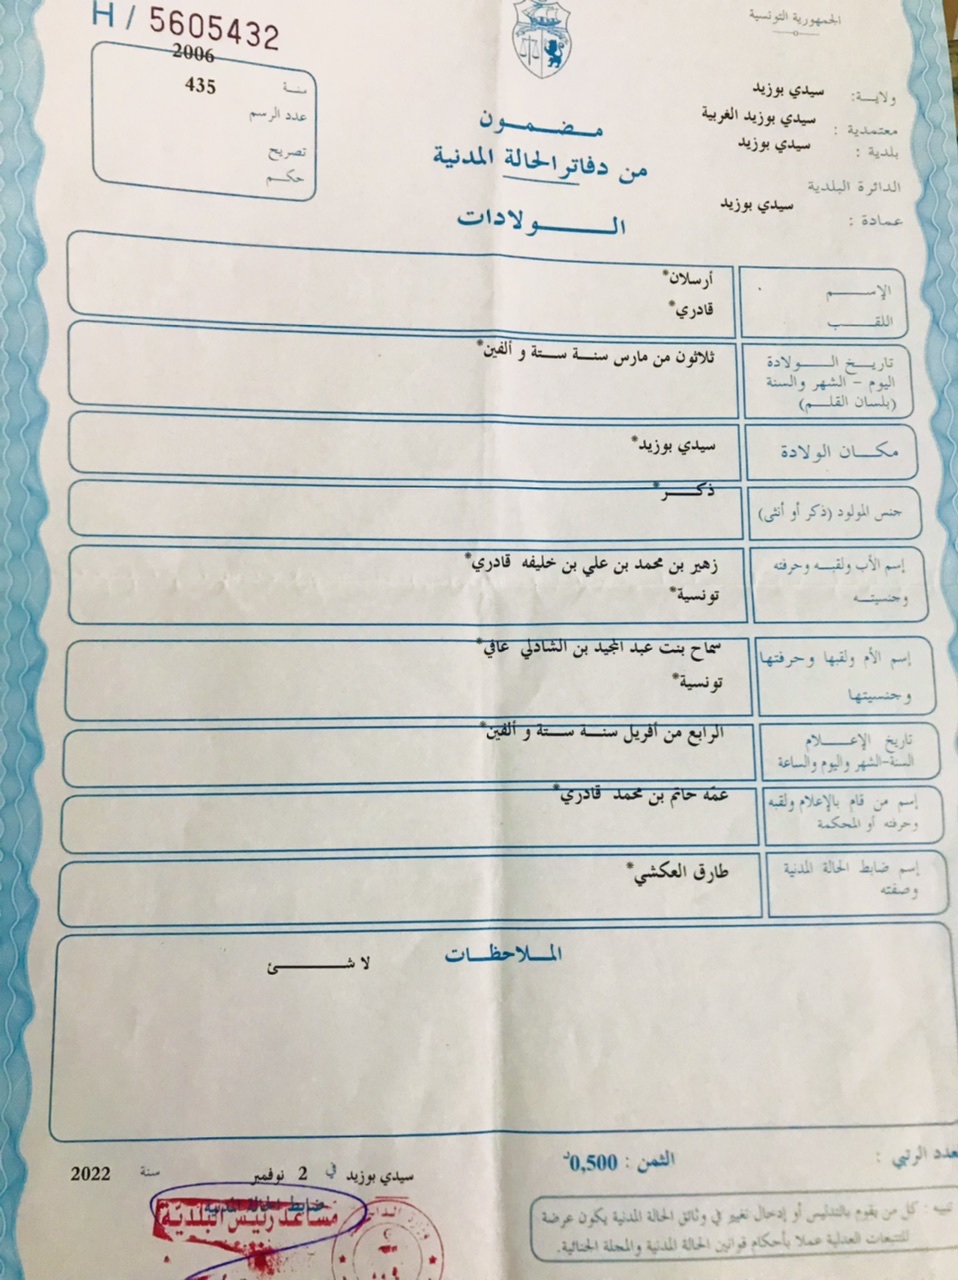 H / 5605432
الجمهورية التونسية
ولاية: سيدي بوزيد
معتمدية : سيدي بوزيد الغربية
بلدية : سيدي بوزيد
الدائرة البلدية
عمادة : سيدي بوزيد
سنة 2006
عدد الرسم 435
تصريح
حكم
مضمون
من دفاتر الحالة المدنية
الولادات
الإسم أرسلان*
اللقب قادري*
تاريخ الولادة
اليوم - الشهر والسنة
(بلسان القلم)
ثلاثون من مارس سنة ستة و ألفين*
مكان الولادة سيدي بوزيد*
جنس المولود (ذكر أو أنثى) ذكر*
إسم الأب ولقبه وحرفته زهير بن محمد بن علي بن خليفه قادري*
وجنسيته تونسية*
إسم الأم ولقبها وحرفتها سماح بنت عبد المجيد بن الشاذلي عافي*
وجنسيتها تونسية*
تاريخ الإعلام الرابع من أفريل سنة ستة و ألفين*
السنة-الشهر واليوم والساعة
إسم من قام بالإعلام ولقبه عمّه حاتم بن محمد قادري*
وحرفته أو المحكمة
إسم ضابط الحالة المدنية طارق العكشي*
وصفته
الملاحظات
لا شئ
عدد الرتبي :
الثمن : 0,500د
سيدي بوزيد في 2 نوفمبر سنة 2022
ضابط الحالة المدنية
مساعد رئيس البلدية
تنبيه : كل من يقوم بالتدليس أو إدخال تغيير في وثائق الحالة المدنية يكون عرضة
للتتبعات العدلية عملا بأحكام قوانين الحالة المدنية والمجلة الجنائية.